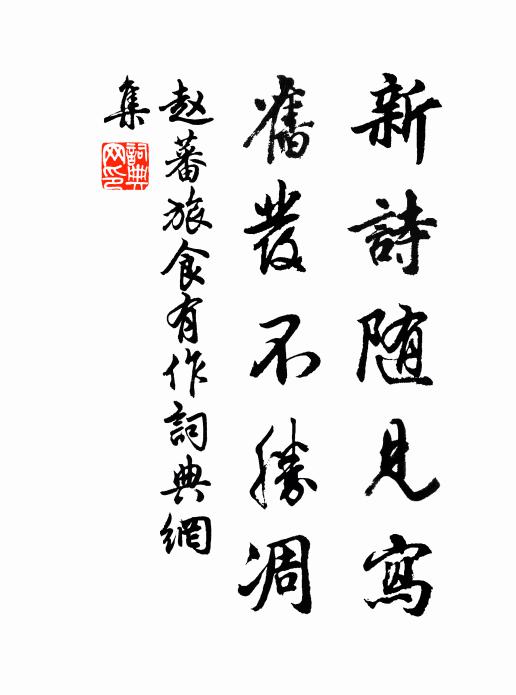 新詩随見寫
舊發不勝凋
赵蕃旅食有作詞典網
集
詞典
网印